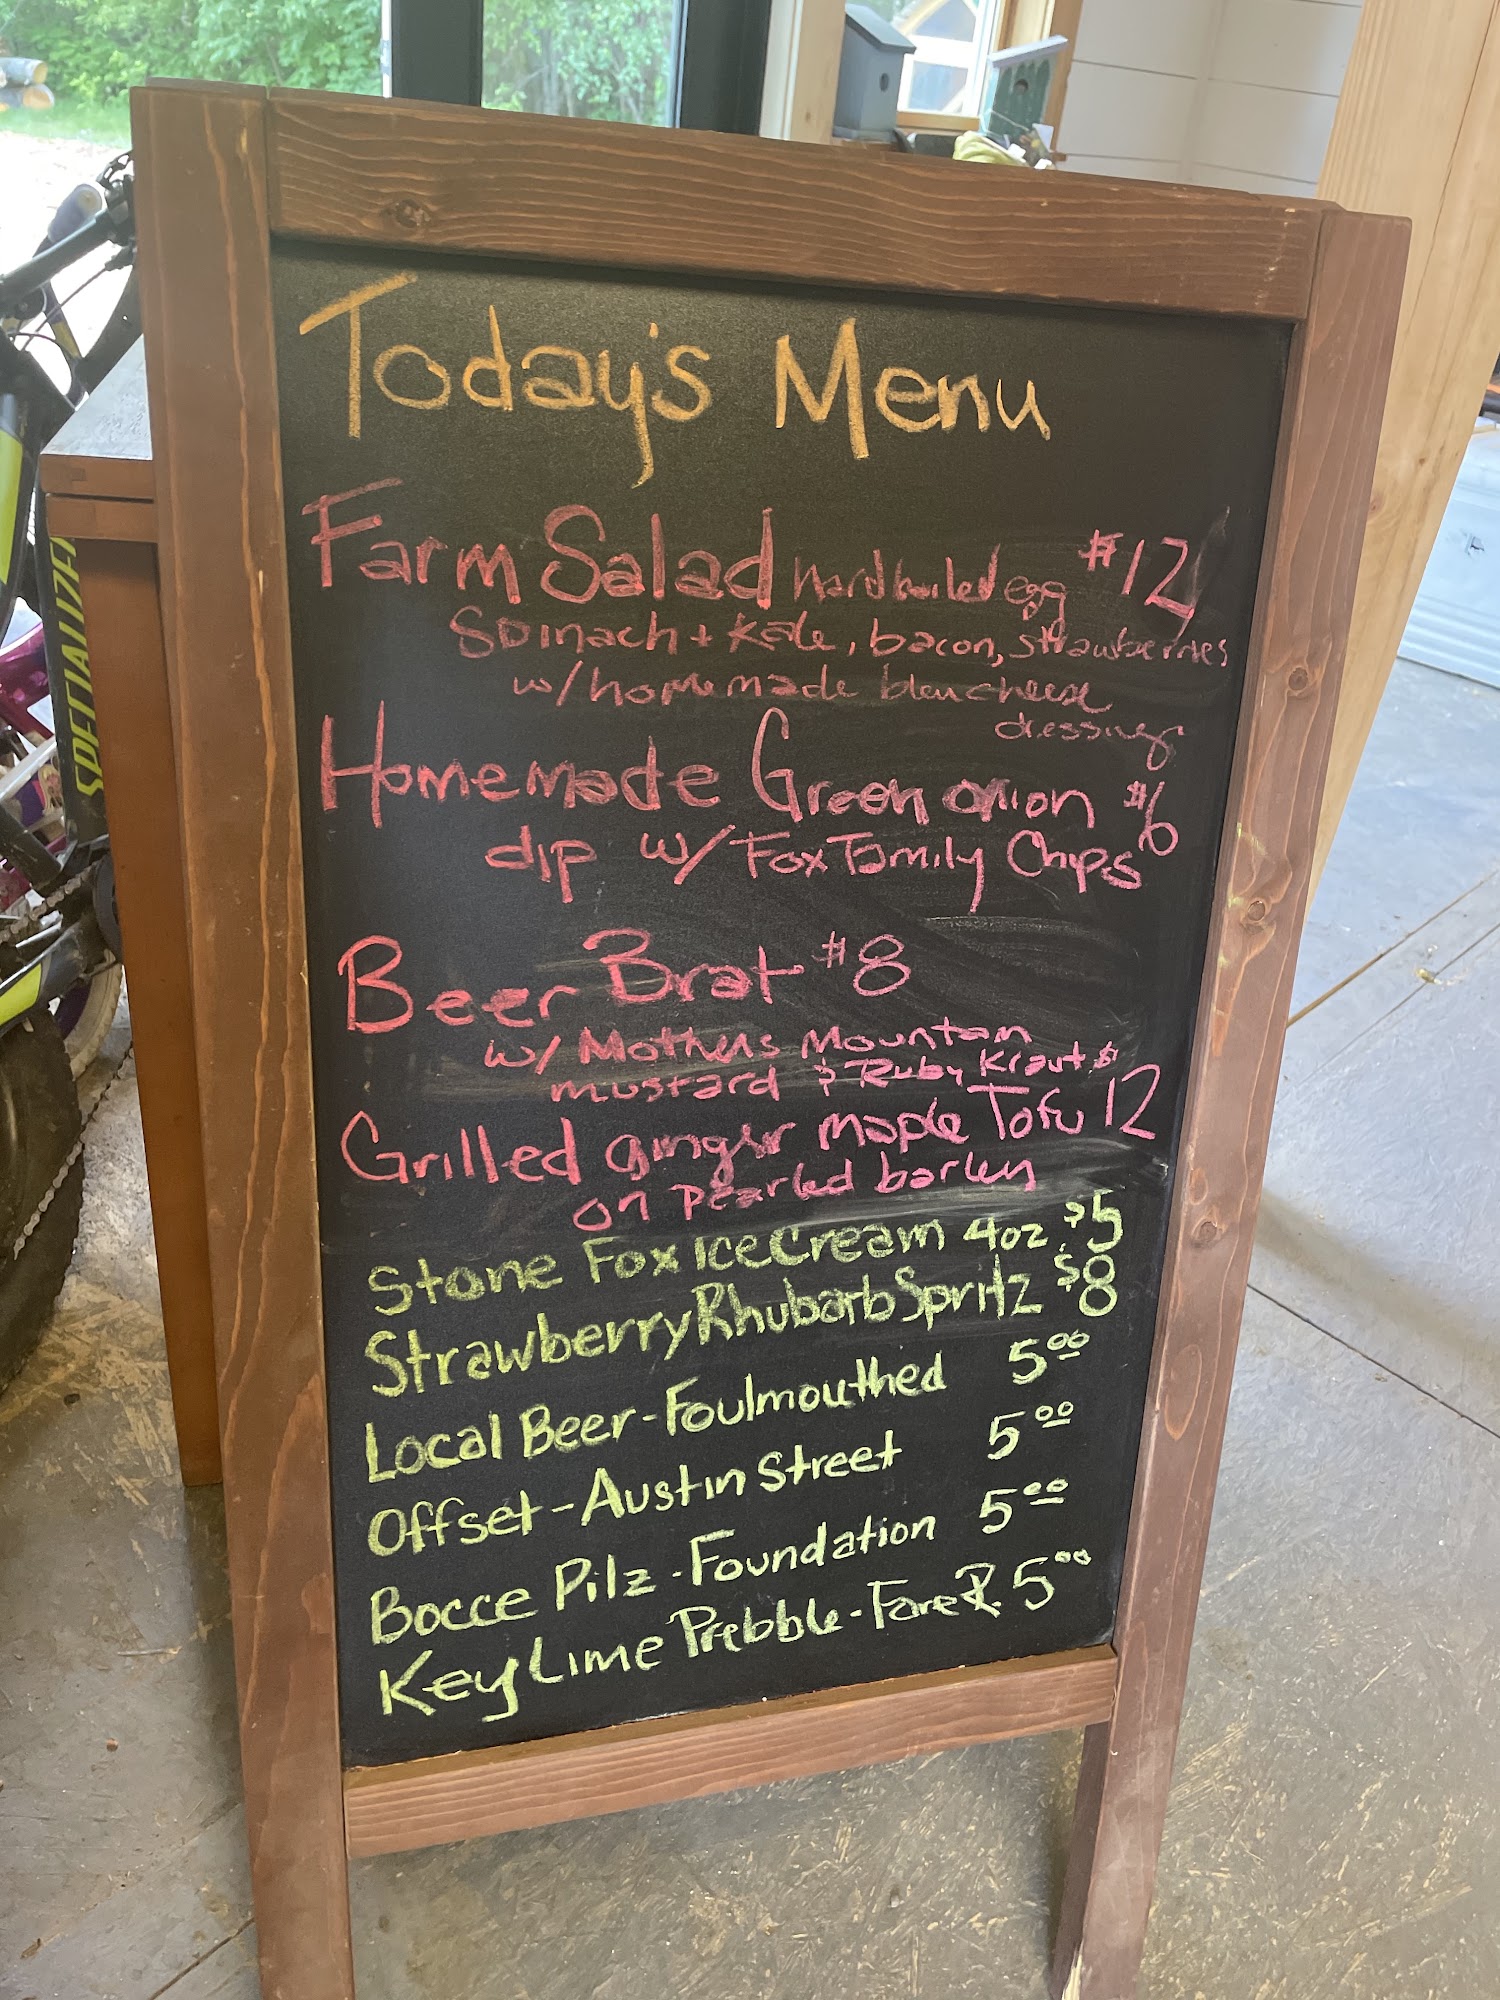 Today's Menu
Farm Salad hardboiled egg $12
Spinach + Kale, bacon, strawberries
w/homemade bleu cheese
dressing
Homemade Green onion $6
dip w/ Fox Family Chips
Beer Brat $8
w/ Mothers Mountain
mustard & Ruby Kraut $
Grilled ginger maple Tofu 12
on pearled barley
Stone Fox Ice Cream 4oz. $5
Strawberry Rhubarb Spritz $8
Local Beer - Foulmouthed 5.00
Offset - Austin Street 5.00
Bocce Pilz - Foundation 5.00
Key Lime Prebble - Fore R. 5.00
SPECIALIZED